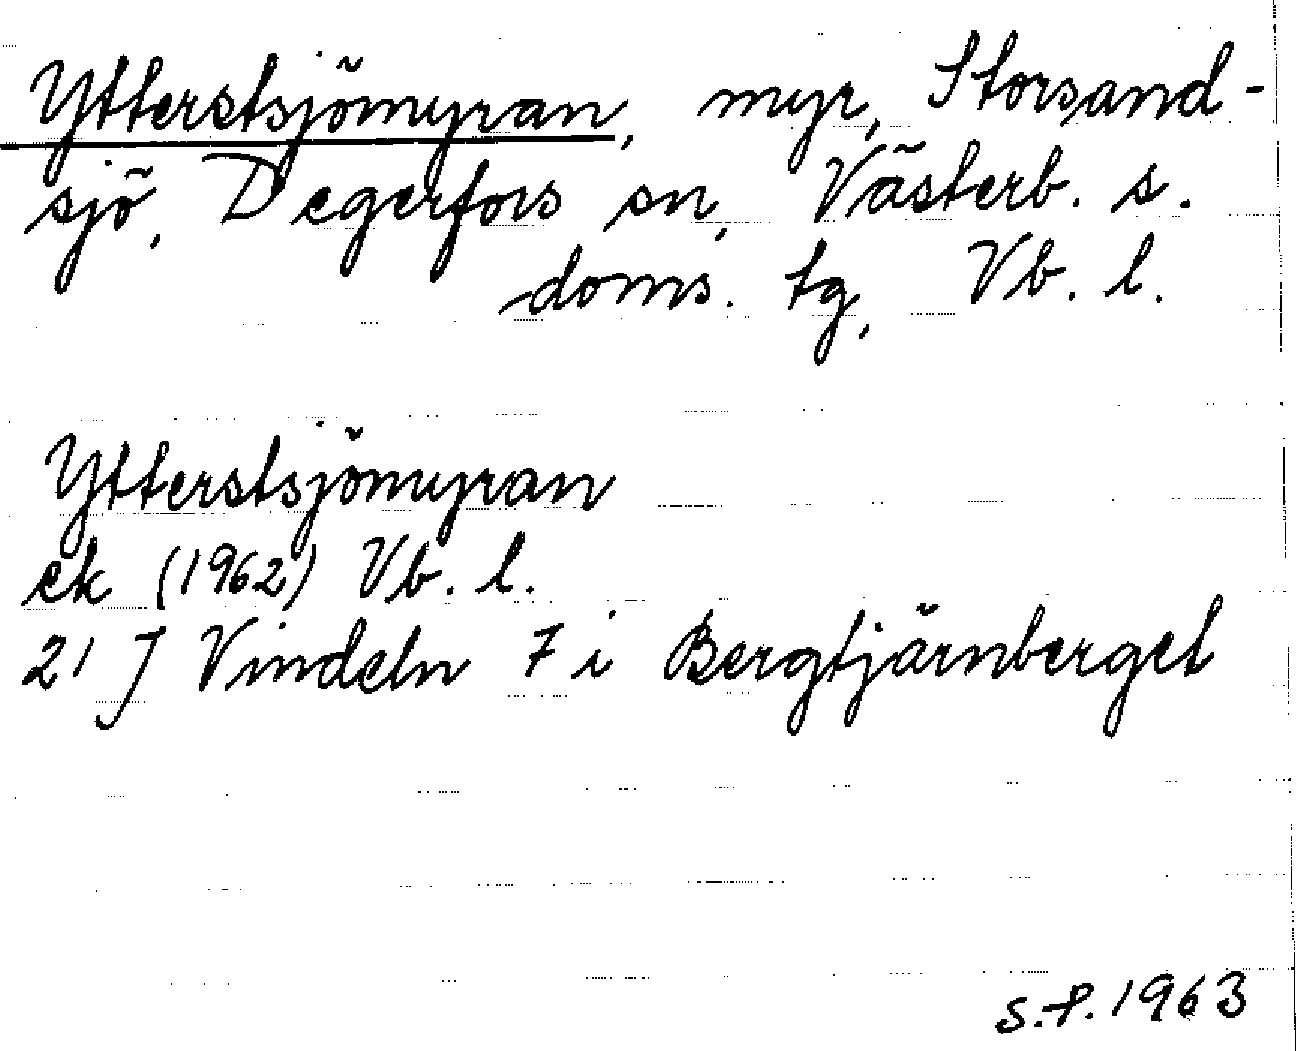 Ytterstsjömyran, myr, Storsand-
sjö, Degerfors sn, Västerb. s.
doms. tg, Vb. l.
Ytterstsjömyran
ek (1962) Vb. l.
21 J Vindeln 7 i Bergtjärnberget
S.P. 1963